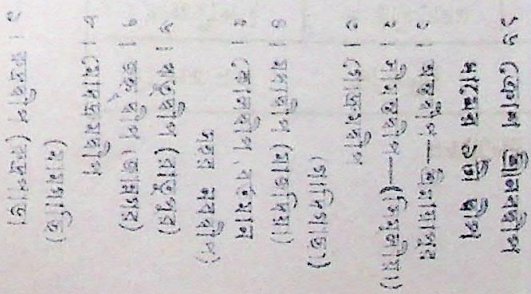 ১৬ ক্রোশ শ্রীনবদ্বীপ
ধামের ৯টি দ্বীপ
১। অন্তর্দ্বীপ—শ্রীমায়াপুর
২। সীমন্তদ্বীপ—(সিমুলীয়া)
৩। গোদ্রুমদ্বীপ
(গাদিগাছা)
৪। মধ্যদ্বীপ (মাজদিয়া)
৫। কোলদ্বীপ, বর্তমান
সহর নবদ্বীপ)
৬। ঋতুদ্বীপ (রাতুপুর)
৭। জহ্নুদ্বীপ (জাননগর)
৮। মোদদ্রুমদ্বীপ
(মামগাছি)
৯। রুদ্রদ্বীপ (রুদ্রপাড়া)